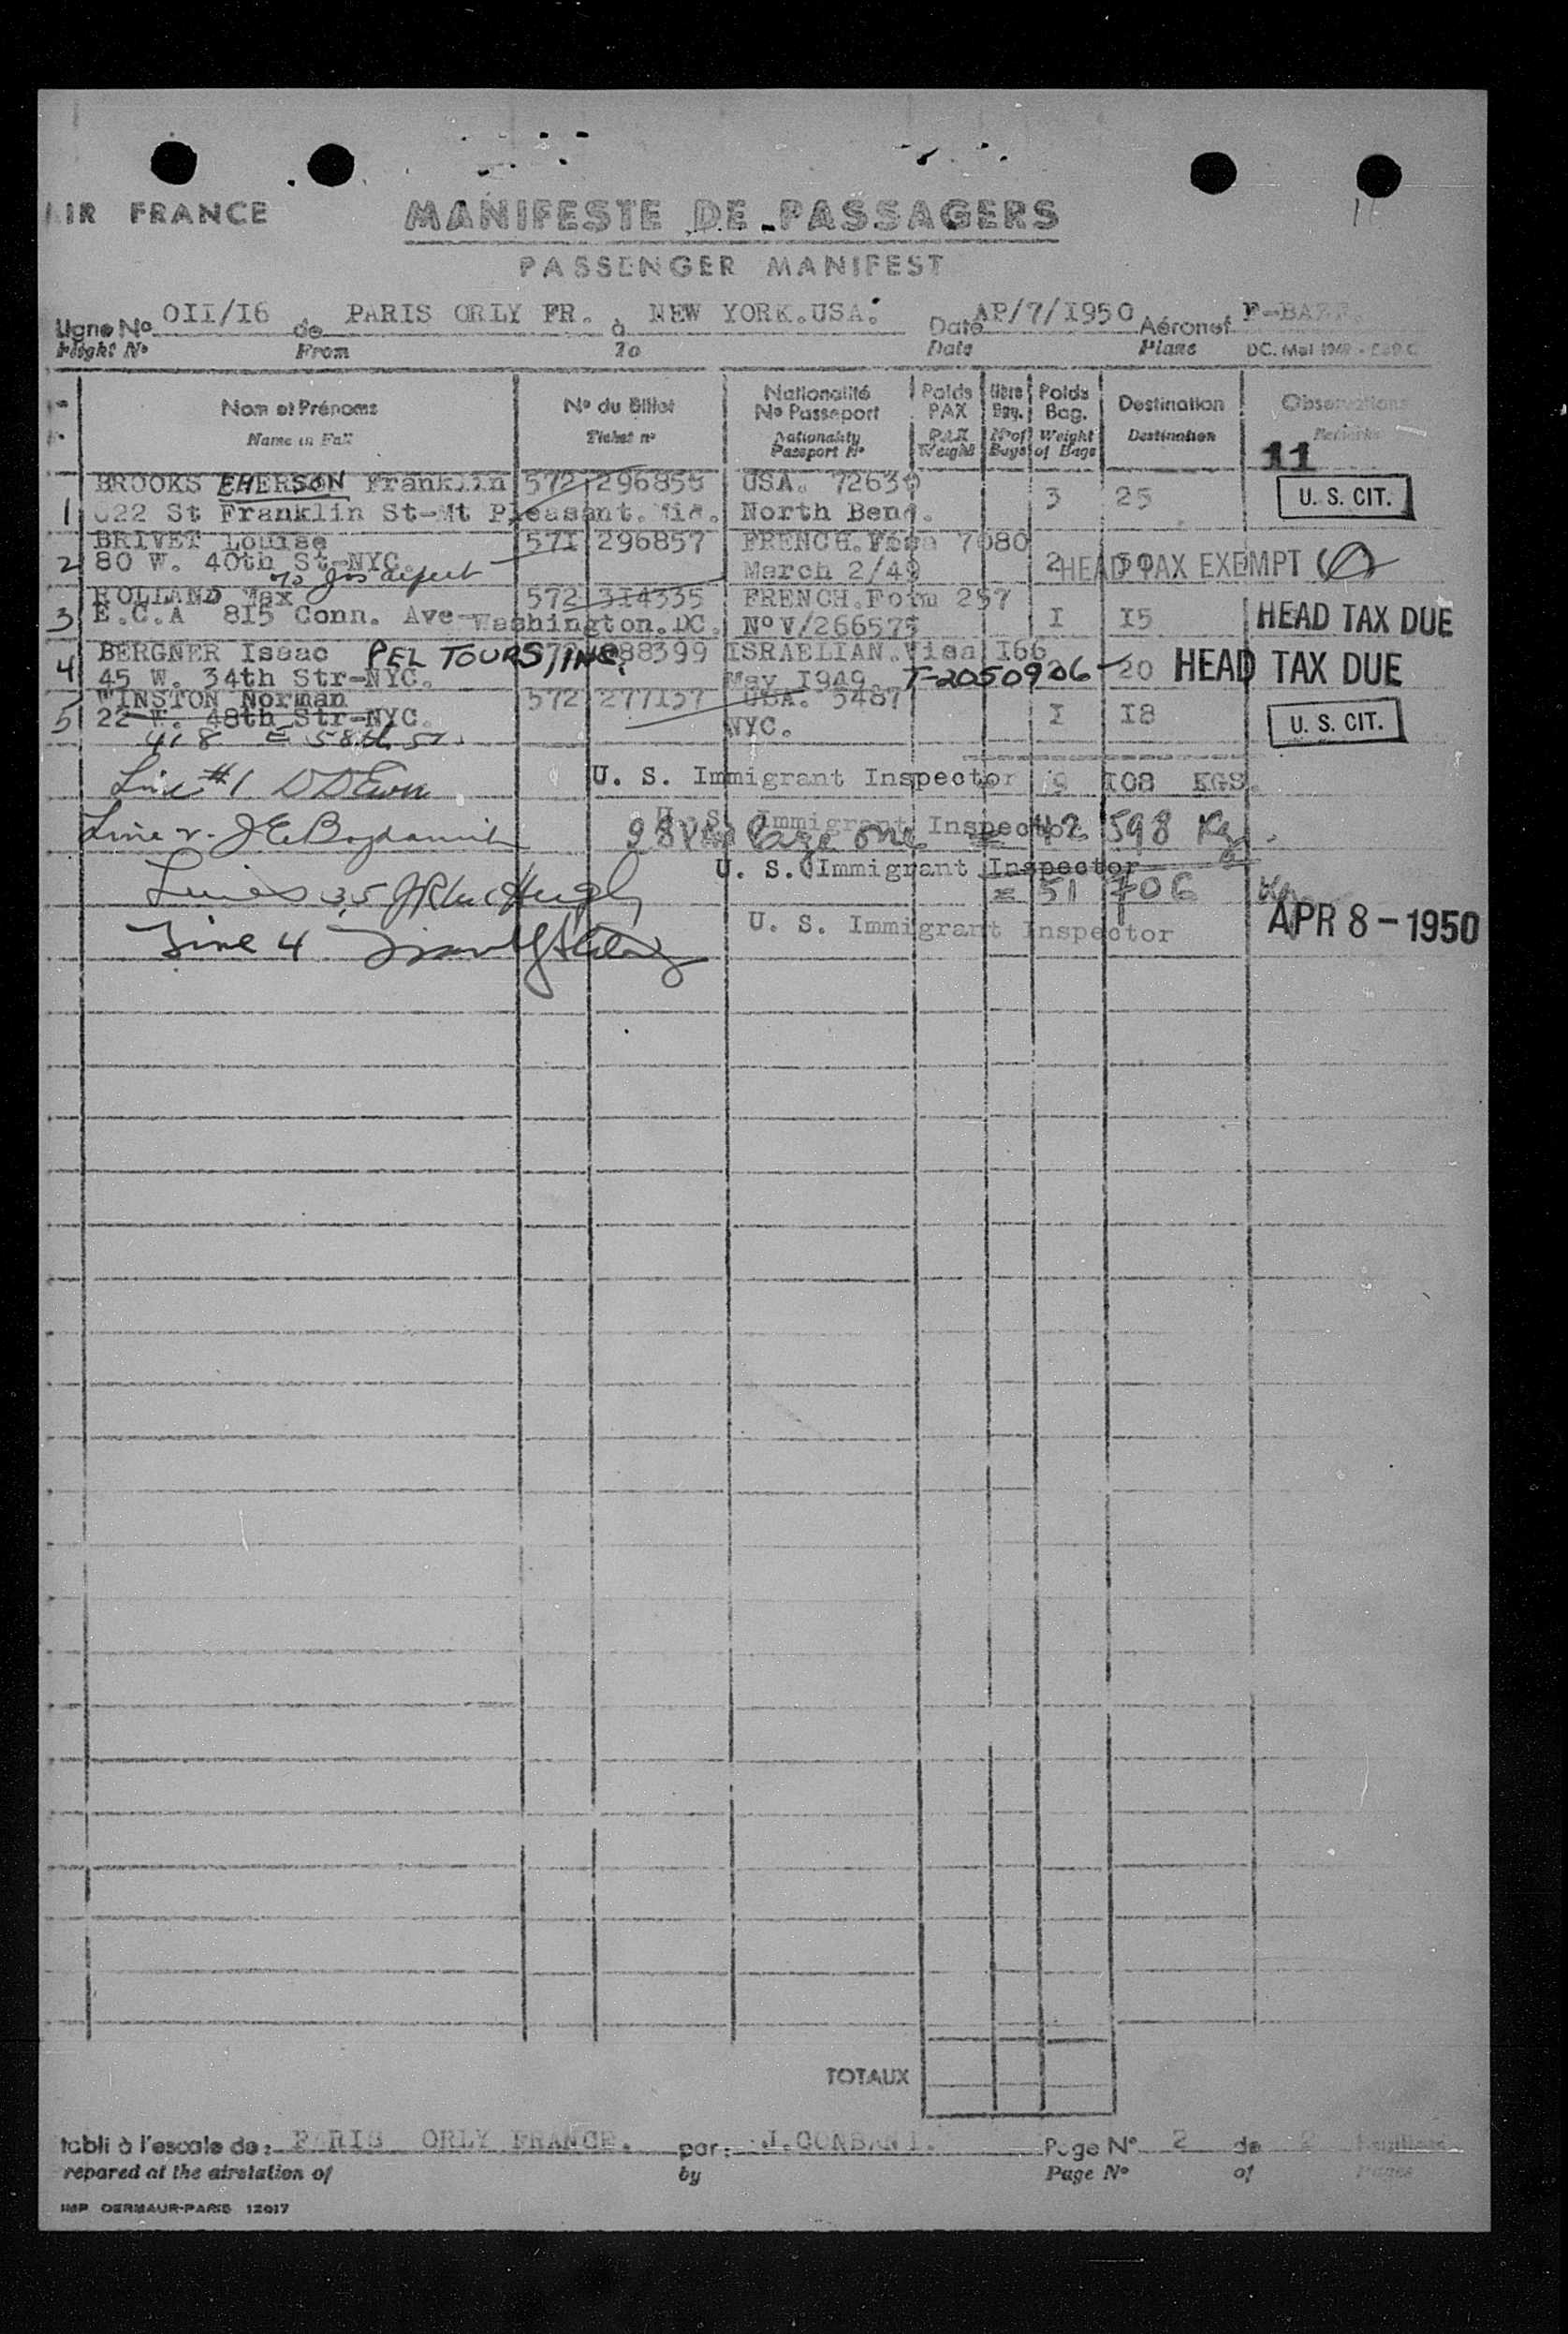 AIR FRANCE
MANIFESTE DE PASSAGERS
PASSENGER MANIFEST
Ligne No OII/I6 de PARIS ORLY FR. à NEW YORK.USA. Date AP/7/I950 Aéronef
Flight No From To Date Plane
Nom et Prénoms No du Billet Nationalité No Passeport Poids PAX Nbre Bag. Poids Bag. Destination Observations
Name in Full Ticket no Nationality Passport No PAX Weight No of Bags Weight of Bags Destination Remarks
11
1 BROOKS EMERSON Franklin 572 296856 USA. 3 25 U. S. CIT.
St Franklin St-Mt Pleasant. North Bend.
2 BRIVET Louise 571 296857 FRENCH. 7080
80 W. 40th St-NYC. March 2/49 2 HEAD TAX EXEMPT
3 ROLLAND Max 572 314335 FRENCH.Foim 257
E.C.A 815 Conn. Ave-Washington.DC. No V/266575 I I5 HEAD TAX DUE
4 BERGNER Isaac PEL TOURS, INC. 88399 ISRAELIAN.Visa I66
45 W. 34th Str-NYC. May I949. T-2050906 20 HEAD TAX DUE
5 WINSTON Norman 572 277157 USA. 5487
22 W. 48th Str-NYC. NYC. I I8 U. S. CIT.
418 E 58th St.
Line #1 U. S. Immigrant Inspector 9 I08 KGS.
Line 2. U. S. Immigrant Inspector
Page one = 42 598 Kg.
U. S. Immigrant Inspector
Lines 3.5 = 51 706 Kg
Line 4 U. S. Immigrant Inspector APR 8 - 1950
TOTAUX
tabli à l'escale de: PARIS ORLY FRANCE. par: Page No 2 de 2
repared at the airstation of by Page No of Pages
IMP DERMAUR-PARIS 12017